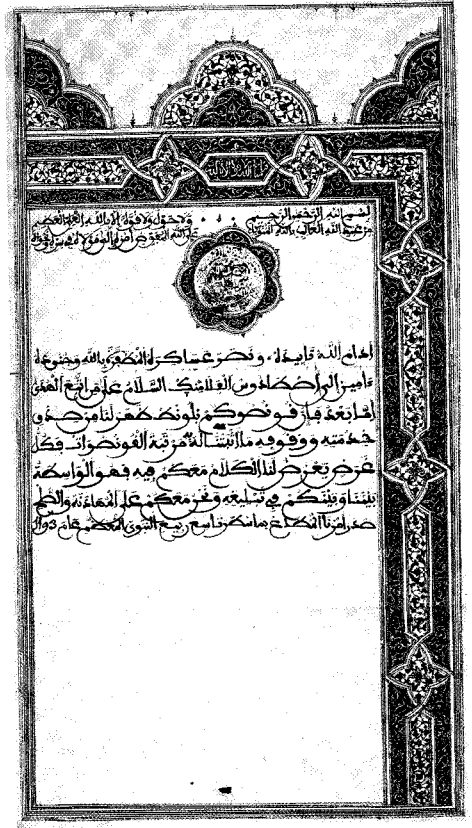 بسم الله الرحمن الرحيم ولا حول ولا قوة إلا بالله العلي العظيم
من عبد الله الغالب بالله على الله المفوض أمره إلى مولاه في
أدام الله تاييده، ونصر عساكره المظفرة بالله وجنوده
ءامين إلى أصطادوس الفلامنك السلام على من اتبع الهدى
أما بعد فإن قونصوكم ظهر لنا من صدق
خدمته ووقوفه ما أثبتنا له مرتبة القونصوات فكل
غرض يعرض لنا الكلام معكم فيه فهو الواسطة
بيننا وبينكم في تبليغه ونحن معكم على المهادنة والصلح
صدر أمرنا المطاع تاسع ربيع النبوي المعظم عام